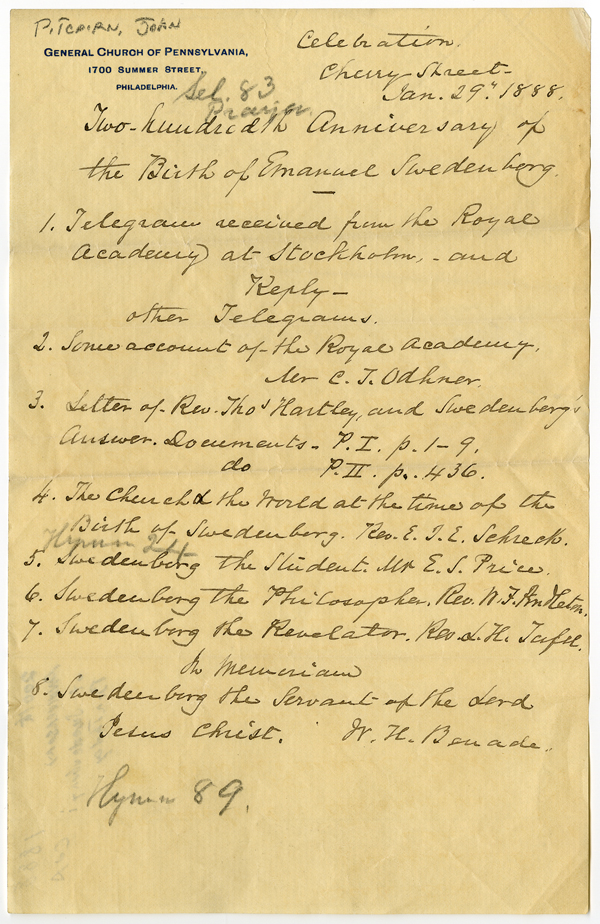 PITCAIRN, JOHN
GENERAL CHURCH OF PENNSYLVANIA,
1700 SUMMER STREET,
PHILADELPHIA.
Celebration.
Cherry Street-
Jan. 29" 1888.
Sel. 83
Prayer
Two-hundredth Anniversary of
the Birth of Emanuel Swedenborg.
1. Telegram received from the Royal
Academy at Stockholm, - and
Reply-
other Telegrams.
2. Some account of the Royal Academy,
Mr C. T. Odhner.
3. Letter of Rev. Thos Hartley, and Swedenborg's
Answer. Documents - P. I. p. 1-9.
do P. II. p. 436.
4. The Church & the World at the time of the
Birth of Swedenborg. Rev. E. J. E. Schreck.
Hymn 24
5. Swedenborg the Student. Mr E. S. Price.
6. Swedenborg the Philosopher. Rev. W. F. Pendleton.
7. Swedenborg the Revelator. Rev. L. H. Tafel.
In Memoriam
8. Swedenborg the Servant of the Lord
Jesus Christ. W. H. Benade.
Hymn 89.